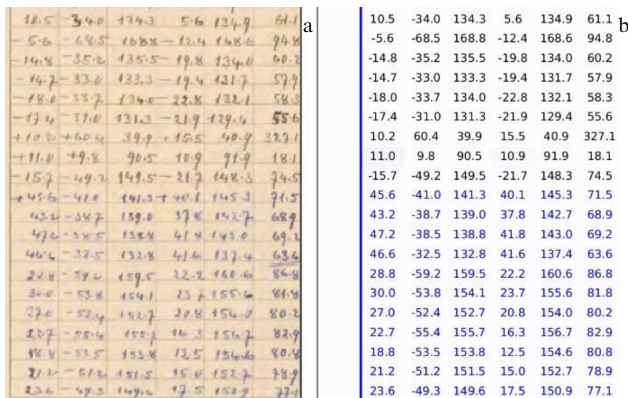 10.5 -34.0 134.3 5.6 134.9 61.1
-5.6 -68.5 168.8 -12.4 168.6 94.8
-14.8 -35.2 135.5 -19.8 134.0 60.2
-14.7 -33.0 133.3 -19.4 131.7 57.9
-18.0 -33.7 134.0 -22.8 132.1 58.3
-17.4 -31.0 131.3 -21.9 129.4 55.6
+10.2 +60.4 39.9 +15.5 40.9 327.1
+11.0 +9.8 90.5 10.9 91.9 18.1
-15.7 -49.2 149.5 -21.7 148.3 74.5
+45.6 -41.0 141.3 +40.1 145.3 71.5
43.2 -38.7 139.0 37.8 142.7 68.9
47.2 -38.5 138.8 41.8 143.0 69.2
46.6 -32.5 132.8 41.6 137.4 63.6
28.8 -59.2 159.5 22.2 160.6 86.8
30.0 -53.8 154.1 23.7 155.6 81.8
27.0 -52.4 152.7 20.8 154.0 80.2
22.7 -55.4 155.7 16.3 156.7 82.9
18.8 -53.5 153.8 12.5 154.6 80.8
21.2 -51.2 151.5 15.0 152.7 78.9
23.6 -49.3 149.6 17.5 150.9 77.1
a
10.5 -34.0 134.3 5.6 134.9 61.1
-5.6 -68.5 168.8 -12.4 168.6 94.8
-14.8 -35.2 135.5 -19.8 134.0 60.2
-14.7 -33.0 133.3 -19.4 131.7 57.9
-18.0 -33.7 134.0 -22.8 132.1 58.3
-17.4 -31.0 131.3 -21.9 129.4 55.6
10.2 60.4 39.9 15.5 40.9 327.1
11.0 9.8 90.5 10.9 91.9 18.1
-15.7 -49.2 149.5 -21.7 148.3 74.5
45.6 -41.0 141.3 40.1 145.3 71.5
43.2 -38.7 139.0 37.8 142.7 68.9
47.2 -38.5 138.8 41.8 143.0 69.2
46.6 -32.5 132.8 41.6 137.4 63.6
28.8 -59.2 159.5 22.2 160.6 86.8
30.0 -53.8 154.1 23.7 155.6 81.8
27.0 -52.4 152.7 20.8 154.0 80.2
22.7 -55.4 155.7 16.3 156.7 82.9
18.8 -53.5 153.8 12.5 154.6 80.8
21.2 -51.2 151.5 15.0 152.7 78.9
23.6 -49.3 149.6 17.5 150.9 77.1
b